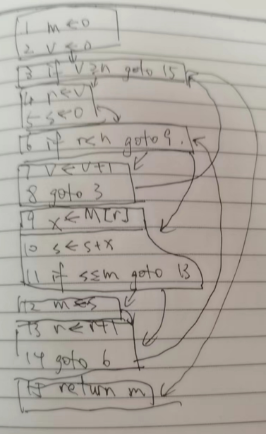 1 m←0
2 v←0
3 if v≥n goto 15
4 r←v
5 s←0
6 if r<n goto 9.
7 v←v+1
8 goto 3
9 x←M[r]
10 s←s+x
11 if s≤m goto 13
12 m←s
13 r←r+1
14 goto 6
15 return m